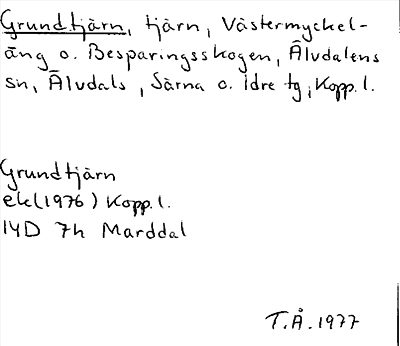 Grundtjärn, tjärn, Västermyckel-
äng o. Besparingsskogen, Älvdalens
sn, Älvdals, Särna o. Idre tg, Kopp. l.
Grundtjärn
ek (1976) Kopp. l.
14D 7h Marddal
T.Å. 1977